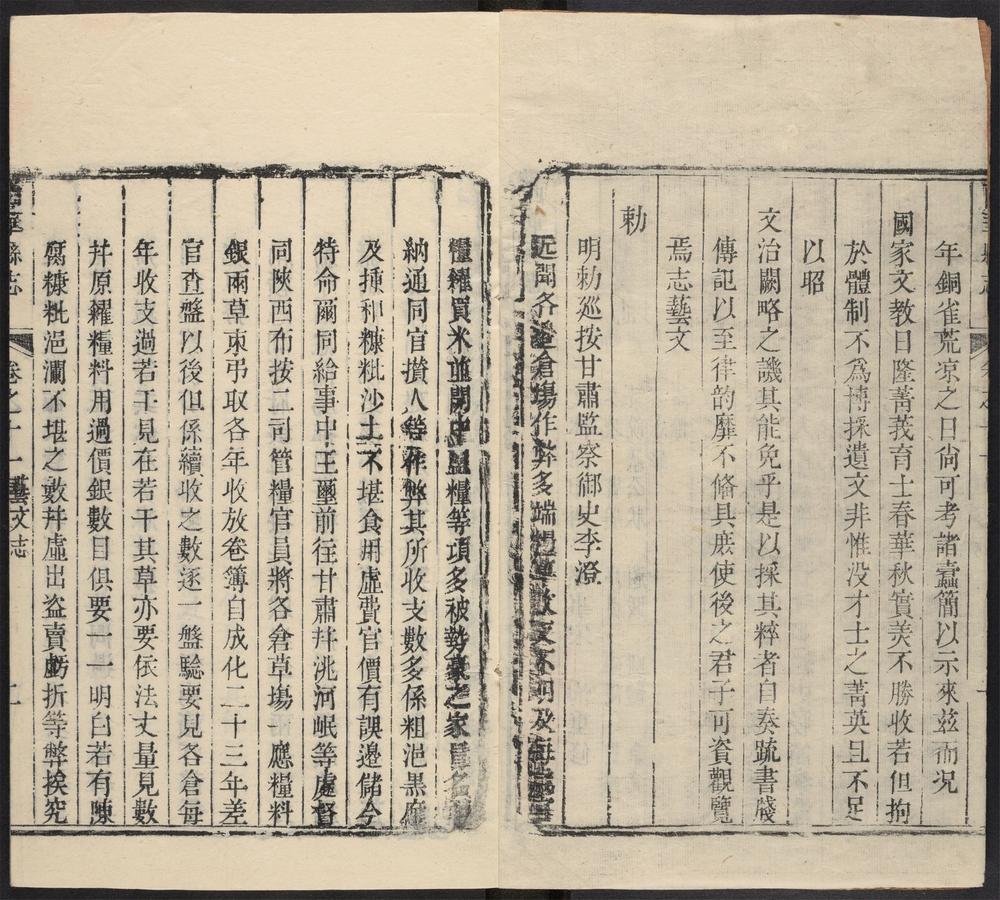 年銅雀荒凉之日尙可考諸蠹簡以示來茲而况
國家文教日隆菁莪育士春華秋實美不勝收若但拘
於體制不爲博採遺文非惟没才士之菁英且不足
以昭
文治闕略之譏其能免乎是以採其粹者自奏䟽書牋
傳記以至律韵靡不備具庶使後之君子可資觀覽
焉志藝文
勅
明勅廵按甘肅監察御史李澄
近聞各邊倉塲作弊多端 數 不明及每
糧糴買米並開中鹽糧等項多被勢豪之家 名
納通同官攅人等作弊其所收支數多係粗浥黒
及揷和糠粃沙土不堪食用虛費官價有誤邊儲今
特命爾同給事中王璽前往甘肅幷洮河岷等處督
同陜西布按二司管糧官員將各倉草塲 應糧料
銀兩草束弔取各年收放卷簿自成化二十三年差
官查盤以後但係續收之數逐一盤騐要見各倉每
年收支過若干見在若干其草亦要依法丈量見數
幷原糴糧料用過價銀數目俱要一一明白若有陳
腐糠粃浥瀾不堪之數幷虛出盗賣虧折等弊挨究
縣志 卷之十一 藝文志 二